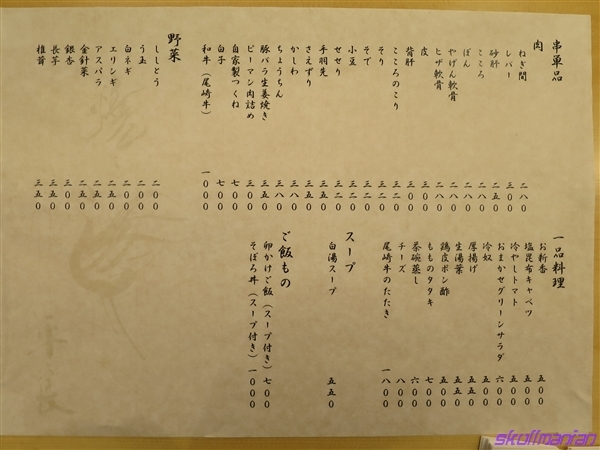 串単品
肉
ねぎ間 二八〇
レバー 三〇〇
砂肝 二五〇
こころ 二八〇
ぽん 二八〇
やげん軟骨 二八〇
ヒザ軟骨 二八〇
皮 二八〇
背肝 三〇〇
こころのこり 三二〇
そり 三二〇
そで 三二〇
小豆 三二〇
セセリ 三二〇
手羽先 三五〇
さえずり 三五〇
かしわ 三八〇
ちょうちん 三八〇
豚バラ生姜焼き 三五〇
ピーマン肉詰め 三五〇
自家製つくね 七〇〇
白子 七〇〇
和牛(尾崎牛) 一〇〇〇
野菜
ししとう 二〇〇
う玉 二〇〇
白ネギ 二〇〇
エリンギ 二五〇
アスパラ 二五〇
金針菜 二五〇
銀杏 三〇〇
長芋 三五〇
椎茸 三五〇
一品料理
お新香 五〇〇
塩昆布キャベツ 五〇〇
冷やしトマト 五〇〇
おまかせグリーンサラダ 六〇〇
冷奴 五〇〇
厚揚げ 五五〇
生湯葉 五五〇
鶏皮ポン酢 五〇〇
もものタタキ 七〇〇
茶碗蒸し 六〇〇
チーズ 八〇〇
尾崎牛のたたき 一八〇〇
スープ
白湯スープ 五五〇
ご飯もの
卵かけご飯(スープ付き) 七〇〇
そぼろ丼(スープ付き) 一〇〇〇
skullmanian